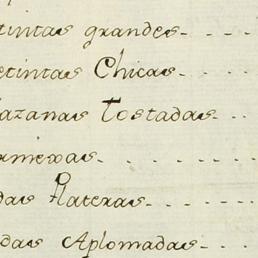 tintas grandes- - - -
etintas Chicas - - - -
azanas Tostadas - -
rmexas - - - -
das Platexas - - - -
das Aplomadas - - -